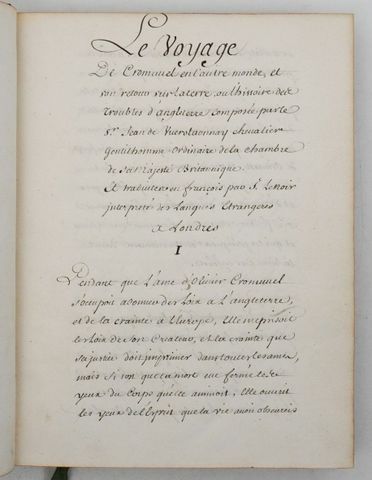 Le Voyage
De Cromwel en l'autre monde, et
son retour sur la terre, ou l'histoire des
Troubles d'Angleterre composée par le
Sr. Jean de Chevalier
Gentilhomme Ordinaire de la Chambre
de Sa Majesté Britannique.
Et traduitte en françois par Sr. Lenoir
interprete des Langues Etrangeres
a Londres
I
Pendant que L'ame d'Olivier Cromwel
s'ocupoit a donner des Loix a L'angleterre,
et de la crainte à l'Europe, Elle meprisoit
les loix de son Createur, et la crainte que
sa justice doit imprimer dans toutes les ames,
mais si tost que la mort eut fermé les
yeux du Corps quelle animoit, Elle ouvrit
les yeux de l'Esprit que la vie avoit obscurcis